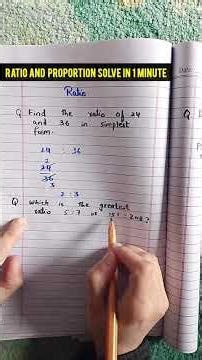 RATIO AND PROPORTION SOLVE IN 1 MINUTE
Ratio
Q Find the ratio of 24
and 36 in simplest
form.
24 : 36
2
24
36
3
2 : 3
Q which is the greatest
ratio 5:7 or